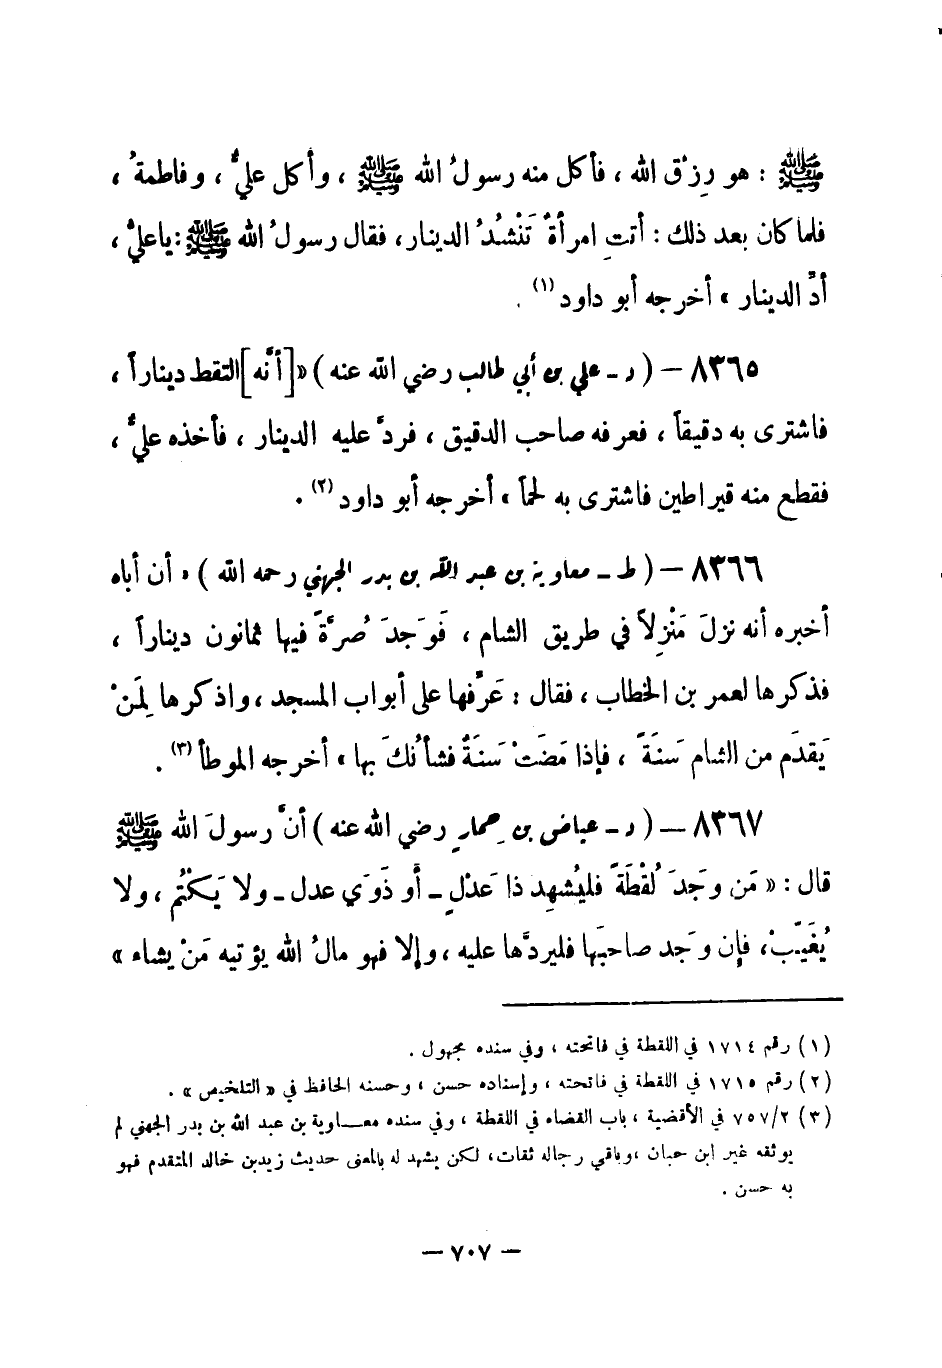 ﷺ : هو رِزْق الله ، فأكل منه رسولُ الله ﷺ ، وأكل عليٌّ ، وفاطمةُ ،
فلما كان بعد ذلك : أتتِ امرأةٌ تَنْشُدُ الدينار، فقال رسولُ الله ﷺ : ياعليُّ ،
أدِّ الدينار » أخرجه أبو داود (١) .
٨٣٦٥ – ( د - علي بن أبي طالب رضي الله عنه ) « [أنَّه] التقط ديناراً ،
فاشترى به دقيقاً ، فعرفه صاحب الدقيق ، فردَّ عليه الدينار ، فأخذه عليٌّ ،
فقطع منه قيراطين فاشترى به لحماً » أخرجه أبو داود (٢) .
٨٣٦٦ – ( ط - معاوية بن عبد الله بن بدر الجهني رحمه الله ) « أن أباه
أخبره أنه نزلَ مَنْزِلاً في طريق الشام ، فَوَجدَ صُرَّةً فيها ثمانون ديناراً ،
فذكرها لعمر بن الخطاب ، فقال : عَرِّفها على أبواب المسجد ، واذكرها لِمَنْ
يَقدَم من الشام سَنَةً ، فإذا مَضَتْ سَنَةٌ فشأنُكَ بها » أخرجه الموطأ (٣) .
٨٣٦٧ – ( د - عياض بن حمارٍ رضي الله عنه ) أنَّ رسولَ الله ﷺ
قال : « مَن وَجَدَ لُقْطَةً فليُشهِد ذا عَدْلٍ - أو ذَوَي عدل - ولا يَكْتُم ، ولا
يُغَيِّبْ، فإن وَجد صاحبَها فليردَّها عليه ، وإلا فهو مالُ الله يؤتيه مَنْ يشاء »
(١) رقم ١٧١٤ في اللقطة في فاتحته ، وفي سنده مجهول .
(٢) رقم ١٧١٥ في اللقطة في فاتحته ، وإسناده حسن ، وحسنه الحافظ في « التلخيص » .
(٣) ٧٥٧/٢ في الأقضية ، باب القضاء في اللقطة ، وفي سنده معـاوية بن عبد الله بن بدر الجهني لم
يوثقه غير ابن حبان ،وباقي رجاله ثقات، لكن يشهد له بالمعنى حديث زيدبن خالد المتقدم فهو
به حسن .
– ٧٠٧ –